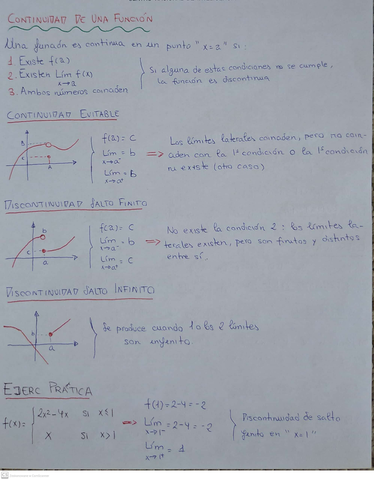 CONTINUIDAD DE UNA FUNCIÓN
Una función es continua en un punto "x=a" si:
1 Existe f(a)
2. Existen Lím f(x)
x→a
3. Ambos números coinciden
Si alguna de estas condiciones no se cumple,
la función es discontinua
CONTINUIDAD EVITABLE
f(a) = C
Lím = b
x→a⁻
Lím = b
x→a⁺
⇒ Los límites laterales coinciden, pero no coin-
ciden con la 1ª condición o la 1ª condición
no existe (otro caso)
b
c
a
DISCONTINUIDAD SALTO FINITO
f(a) = C
Lím = b
x→a⁻
Lím = C
x→a⁺
⇒ No existe la condición 2: los límites la-
terales existen, pero son finitos y distintos
entre sí.
b
c
a
DISCONTINUIDAD SALTO INFINITO
Se produce cuando 1 o los 2 límites
son
a
EJERC PRÁTICA
f(x)= { 2x²-4x si x≤1
x si x>1
⇒ f(1)=2-4=-2
Lím = 2-4=-2
x→1⁻
Lím = 1
x→1⁺
Discontinuidad de salto
finito en "x=1"